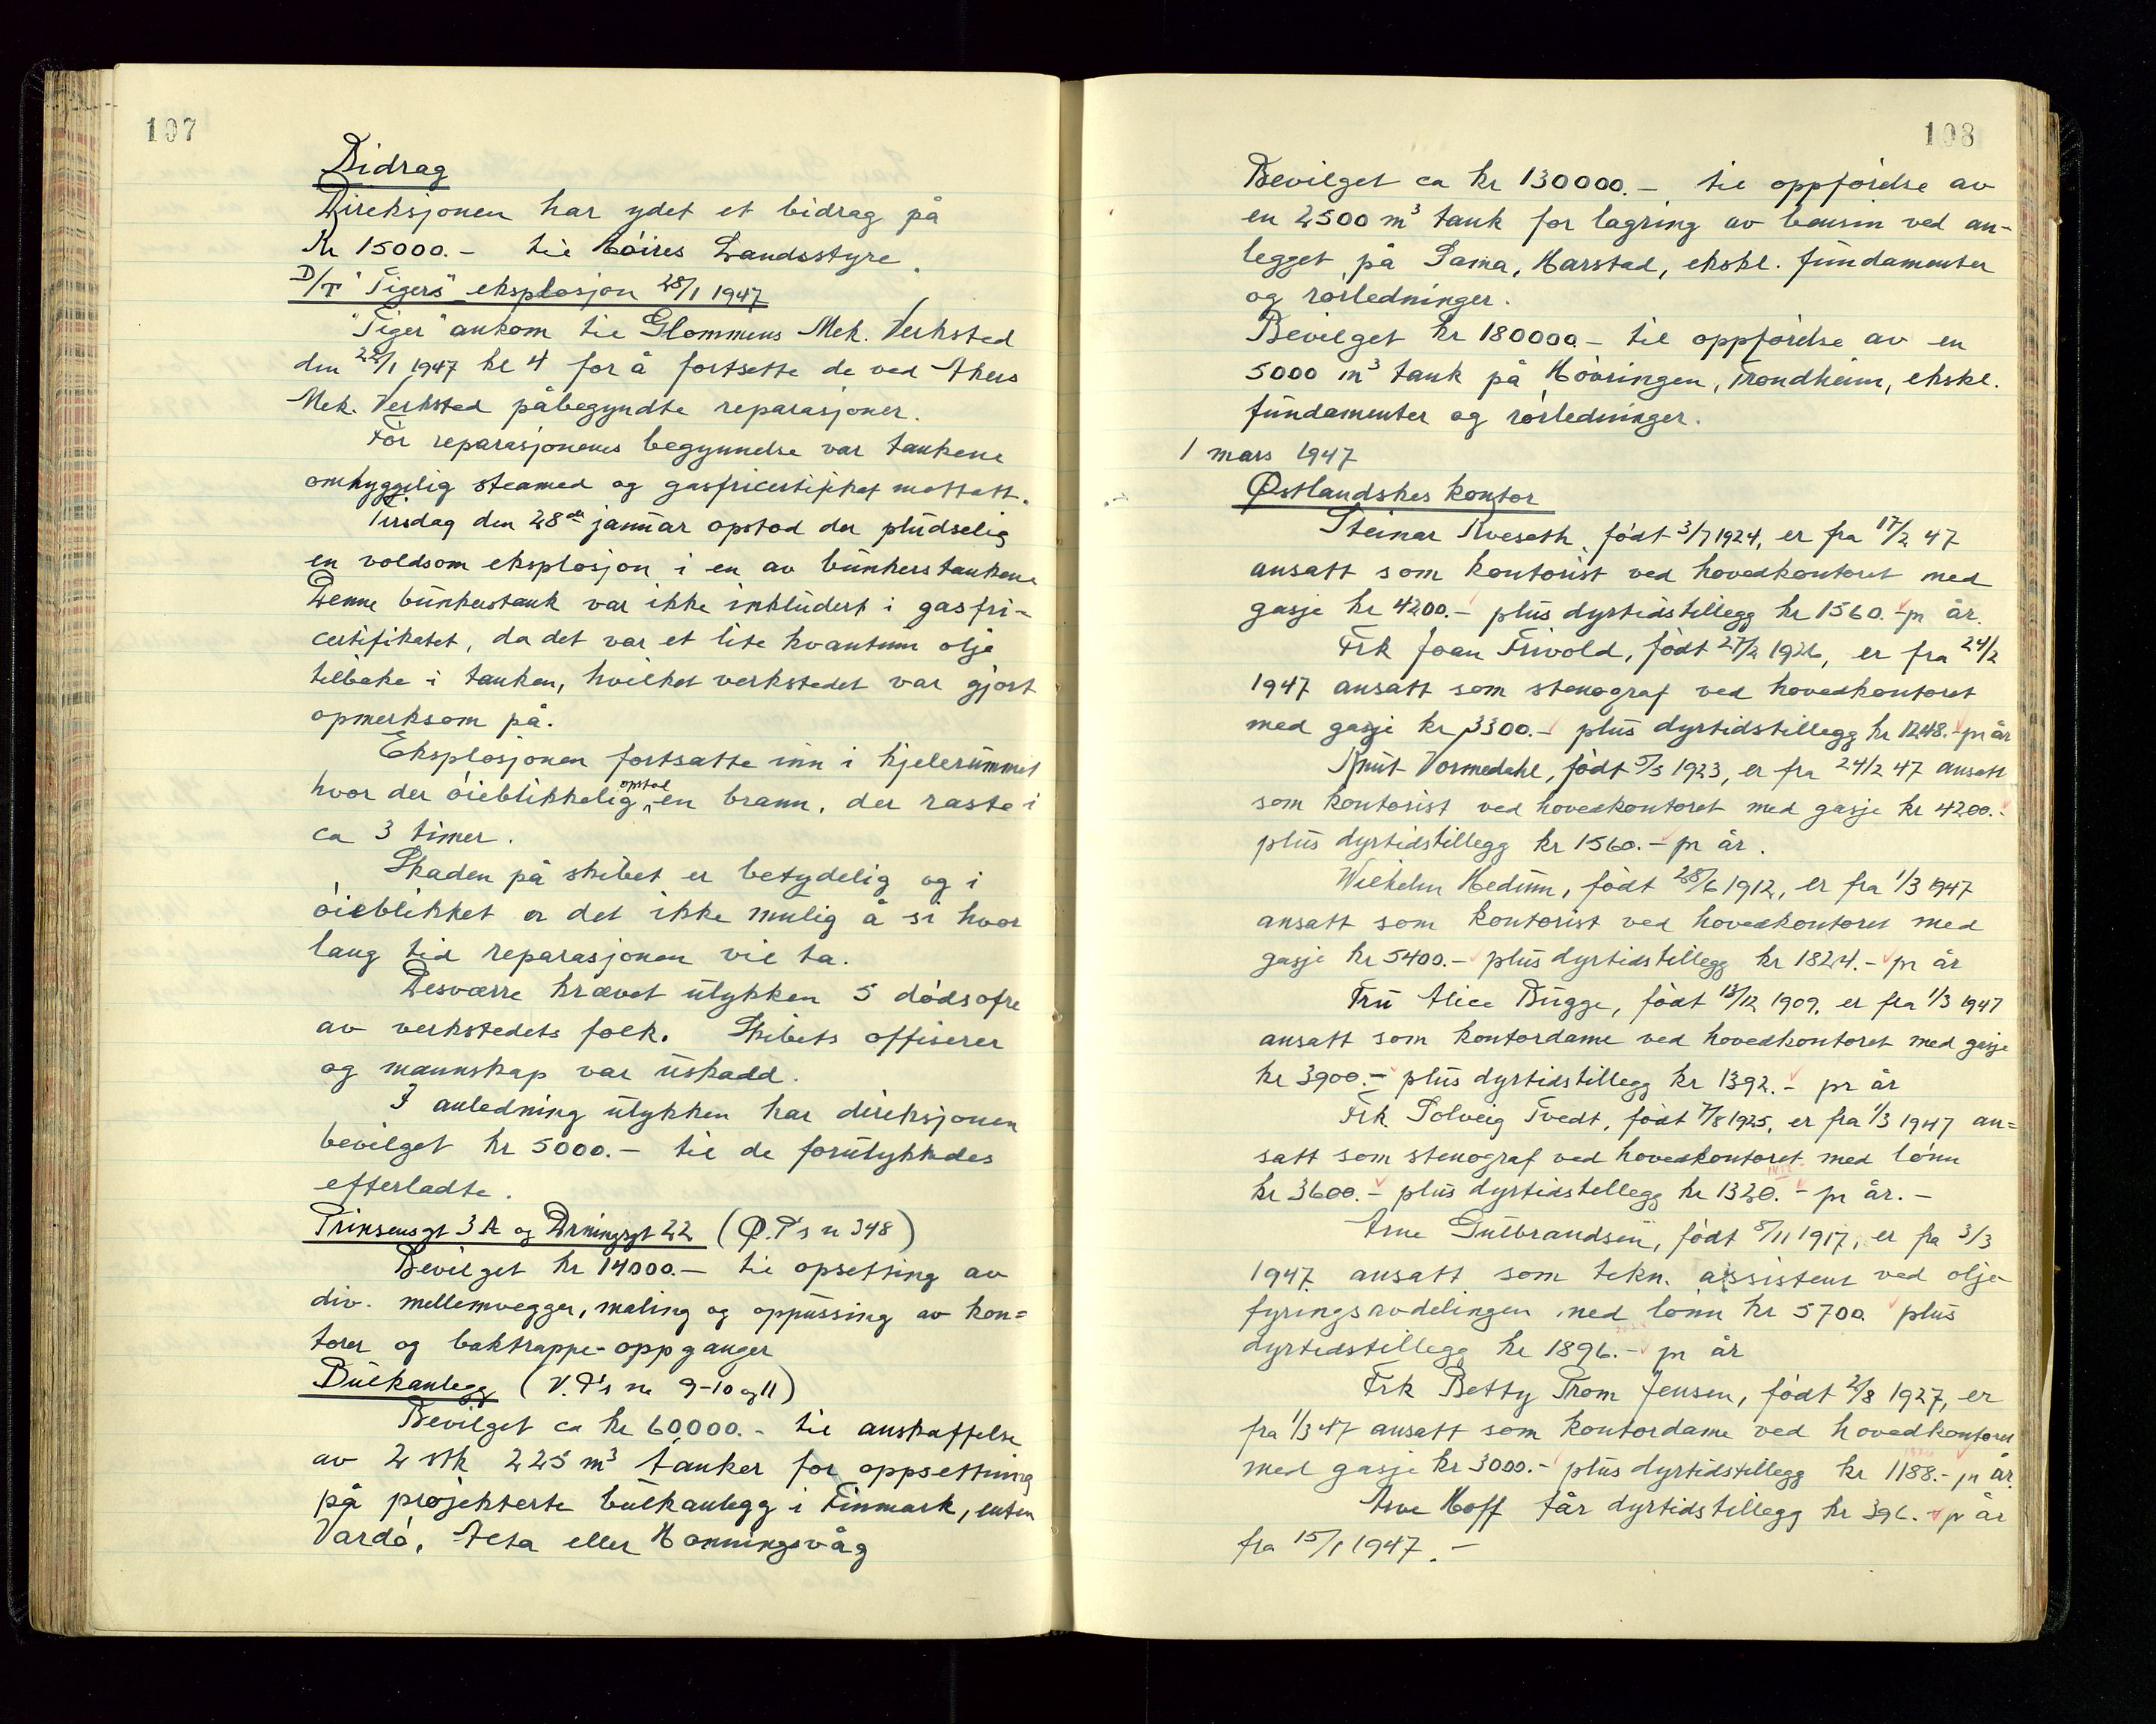 107
Bidrag
Direksjonen har ydet et bidrag på
Kr 15000.- til Höires Landsstyre.
D/T "Tigers" eksplosjon 28/1 1947
"Tiger" ankom til Glommens Mek. Verksted
den 22/1 1947 kl 4 for å fortsette de ved Akers
Mek. Verksted påbegyndte reparasjoner.
För reparasjonenes begynnelse var tankene
omhyggelig steamed og gasfricertifikat mottatt.
Tirsdag den 28de januar opstod der pludselig
en voldsom eksplosjon i en av bunkerstankene
Denne bunkerstank var ikke inkludert i gasfri-
certifikatet, da det var et lite kvantum olje
tilbake i tanken, hvilket verkstedet var gjort
opmerksom på.
Eksplosjonen fortsatte inn i kjelerummet
hvor der öieblikkelig opstod en brann, der raste i
ca 3 timer.
Skaden på skibet er betydelig og i
öieblikket er det ikke mulig å si hvor
lang tid reparasjonen vil ta.
Desværre krævet ulykken 5 dödsofre
av verkstedets folk. Skibets offiserer
og mannskap var uskadd.
I anledning ulykken har direksjonen
bevilget kr 5000.- til de forulykkedes
efterladte.
Prinsensgt 3A og Drningsgt 22 (Ø.P's nr 348)
Bevilget kr 14000.- til opsetting av
div. mellemvegger, maling og oppussing av kon=
torer og baktrappe-oppganger
Bulkanlegg (V.P's nr 9-10 og 11)
Bevilget ca kr 60,000.- til anskaffelse
av 2 stk 225 m³ tanker for oppsetting
på projekterte bulkanlegg i Finmark, enten
Vardö, Alta eller Honningsvåg
108
Bevilget ca kr 130000.- til oppförelse av
en 2500 m³ tank for lagring av bensin ved an-
legget på Sama, Harstad, ekskl. fundamenter
og rörledninger.
Bevilget kr 180000.- til oppförelse av en
5000 m³ tank på Hövringen, Trondheim, ekskl.
fundamenter og rörledninger.
1 mars 1947
Østlandskes kontor
Steinar Kveseth, födt 3/7 1924, er fra 17/2 47
ansatt som kontorist ved hovedkontoret med
gasje kr 4200.- plus dyrtidstillegg kr 1560.- pr år.
Frk Joan Frivold, födt 27/2 1926, er fra 24/2
1947 ansatt som stenograf ved hovedkontoret
med gasje kr 3300.- plus dyrtidstillegg kr 1248.- pr år
Knut Vormedahl, födt 5/5 1923, er fra 24/2 47 ansatt
som kontorist ved hovedkontoret med gasje kr 4200.-
plus dyrtidstillegg kr 1560.- pr år.
Wilhelm Hedum, födt 28/6 1912, er fra 1/3 1947
ansatt som kontorist ved hovedkontoret med
gasje kr 5400.- plus dyrtidstillegg kr 1824.- pr år
Fru Alice Bugge, födt 13/12 1909, er fra 1/3 1947
ansatt som kontordame ved hovedkontoret med gasje
kr 3900.- plus dyrtidstillegg kr 1392.- pr år
Frk Solveig Tvedt, födt 7/8 1925, er fra 1/3 1947 an=
satt som stenograf ved hovedkontoret med lönn
kr 3600.- plus dyrtidstellegg kr 1320.- pr år.-
Arne Gulbrandsen, födt 8/11 1917, er fra 3/3
1947 ansatt som tekn. assistent ved olje-
fyringsavdelingen med lönn kr 5700 plus
dyrtidstillegg kr 1896.- pr år
Frk Betty Prom Jensen, födt 2/8 1927, er
fra 1/3 47 ansatt som kontordame ved hovedkontoret
med gasje kr 3000.- plus dyrtidstillegg kr 1188.- pr år.
Arve Hoff får dyrtidstillegg kr 396.- pr år
fra 15/1 1947.-